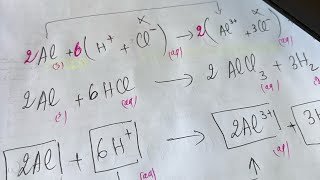 2Al(s) + 6(H⁺ + Cl⁻)(aq) → 2(Al³⁺ + 3Cl⁻)
2Al(s) + 6HCl(aq) → 2AlCl₃(aq) + 3H₂
2Al + 6H⁺(aq) → 2Al³⁺(aq) + 3